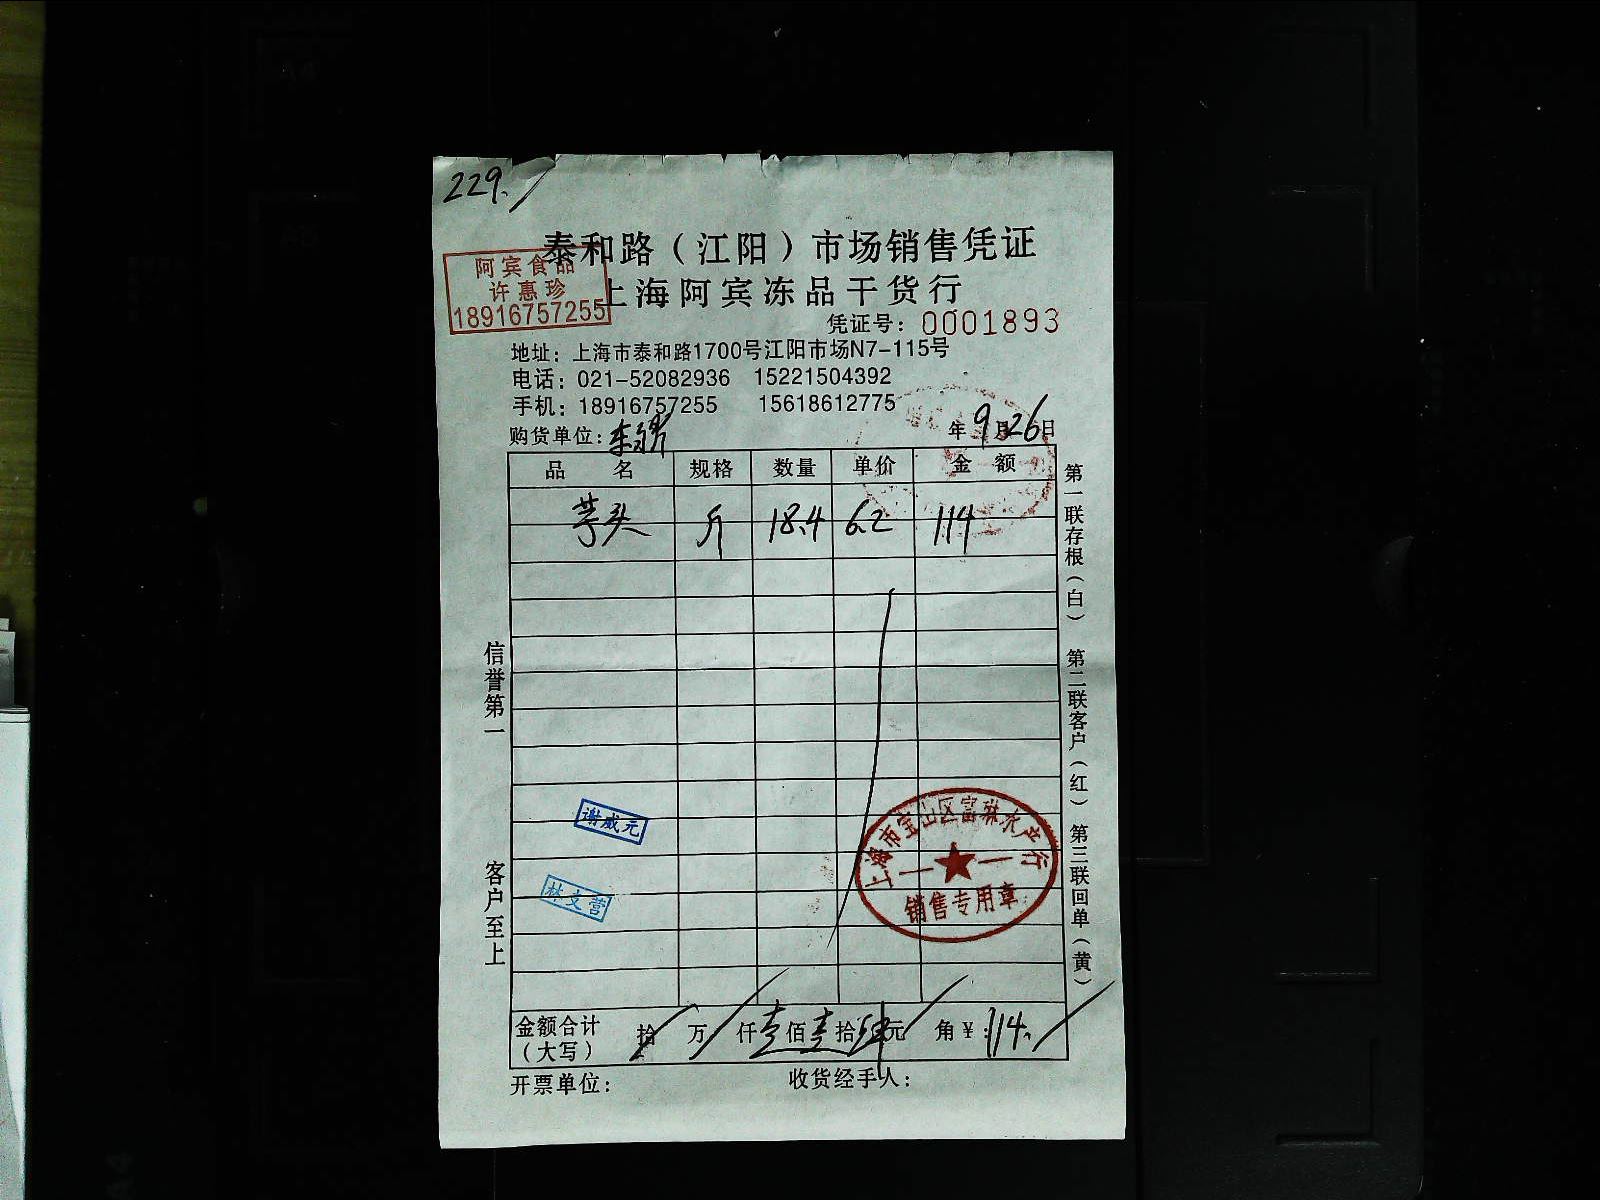 229.
泰和路（江阳）市场销售凭证
阿宾食品
许惠珍
18916757255
上海阿宾冻品干货行
凭证号：0001893
地址：上海市泰和路1700号江阳市场N7-115号
电话：021-52082936 15221504392
手机：18916757255 15618612775
购货单位： 年9月26日
品名 规格 数量 单价 金额
芋头 斤 18.4 6.2 114
第一联存根（白） 第二联客户（红） 第三联回单（黄）
信誉第一
客户至上
谢威元
林文营
上海市宝山区富琳水产行
销售专用章
金额合计（大写） 拾 万 仟壹佰壹拾肆元 角￥：114.
开票单位： 收货经手人：